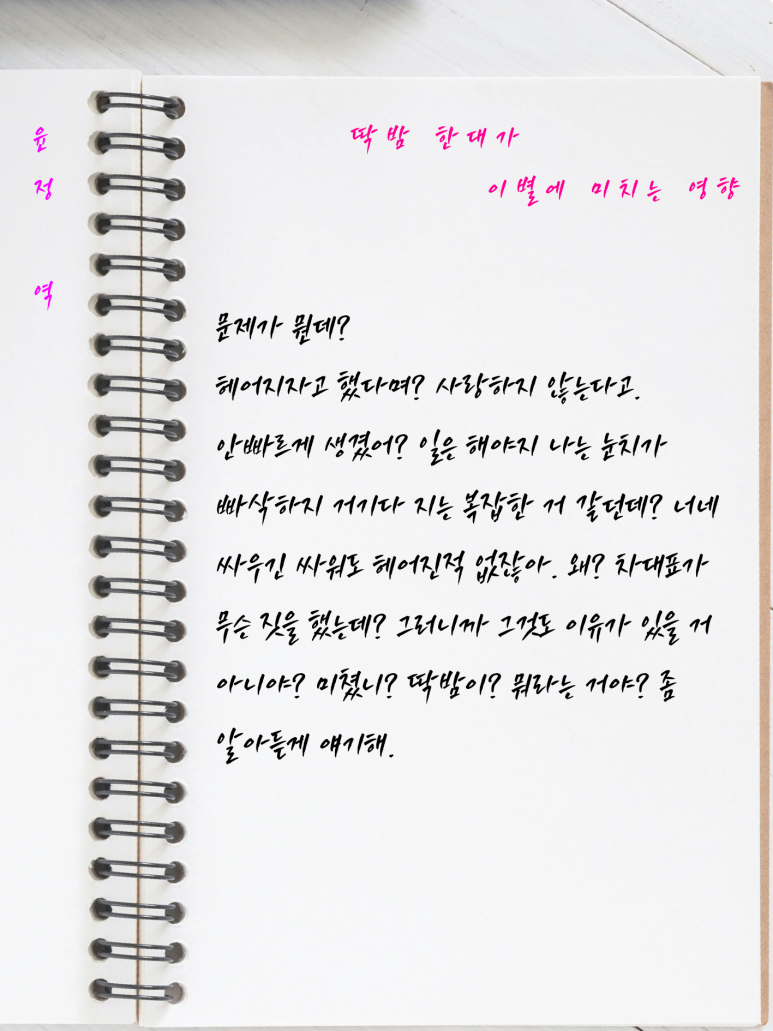 윤
정
역
딱밤 한대가
이별에 미치는 영향
문제가 뭔데?
헤어지자고 했다며? 사랑하지 않는다고.
안빠르게 생겼어? 일은 해야지 나는 눈치가
빠삭하지 거기다 지는 복잡한 거 같던데? 너네
싸우긴 싸워도 헤어진적 없잖아. 왜? 차대표가
무슨 짓을 했는데? 그러니까 그것도 이유가 있을 거
아니야? 미쳤니? 딱밤이? 뭐라는 거야? 좀
알아듣게 얘기해.